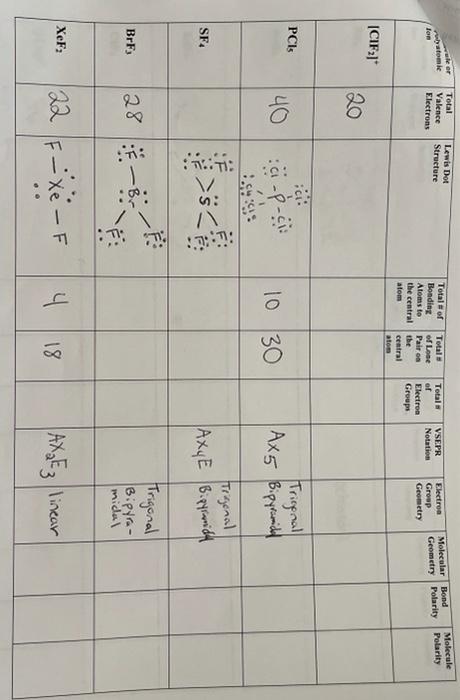 Polyatomic
Ion
Total
Valence
Electrons
Lewis Dot
Structure
Total # of
Bonding
Atoms to
the central
atom
Total #
of Lone
Pair on
the
central
atom
Total #
of
Electron
Groups
VSEPR
Notation
Electron
Group
Geometry
Molecular
Geometry
Bond
Polarity
Molecule
Polarity
[ClF₂]⁺
20
PCl₅
40
:Cl:
:Cl-P-Cl:
:Cl: :Cl:
10
30
AX5
Trigonal
Bipyramidal
SF₄
:F: :F:
S
:F: :F:
AX4E
Trigonal
Bipyramidal
BrF₃
28
:F: :F—Br :F:
Trigonal
Bipyra-
midal
XeF₂
22
F—Xe—F
4
18
AX₂E₃
linear